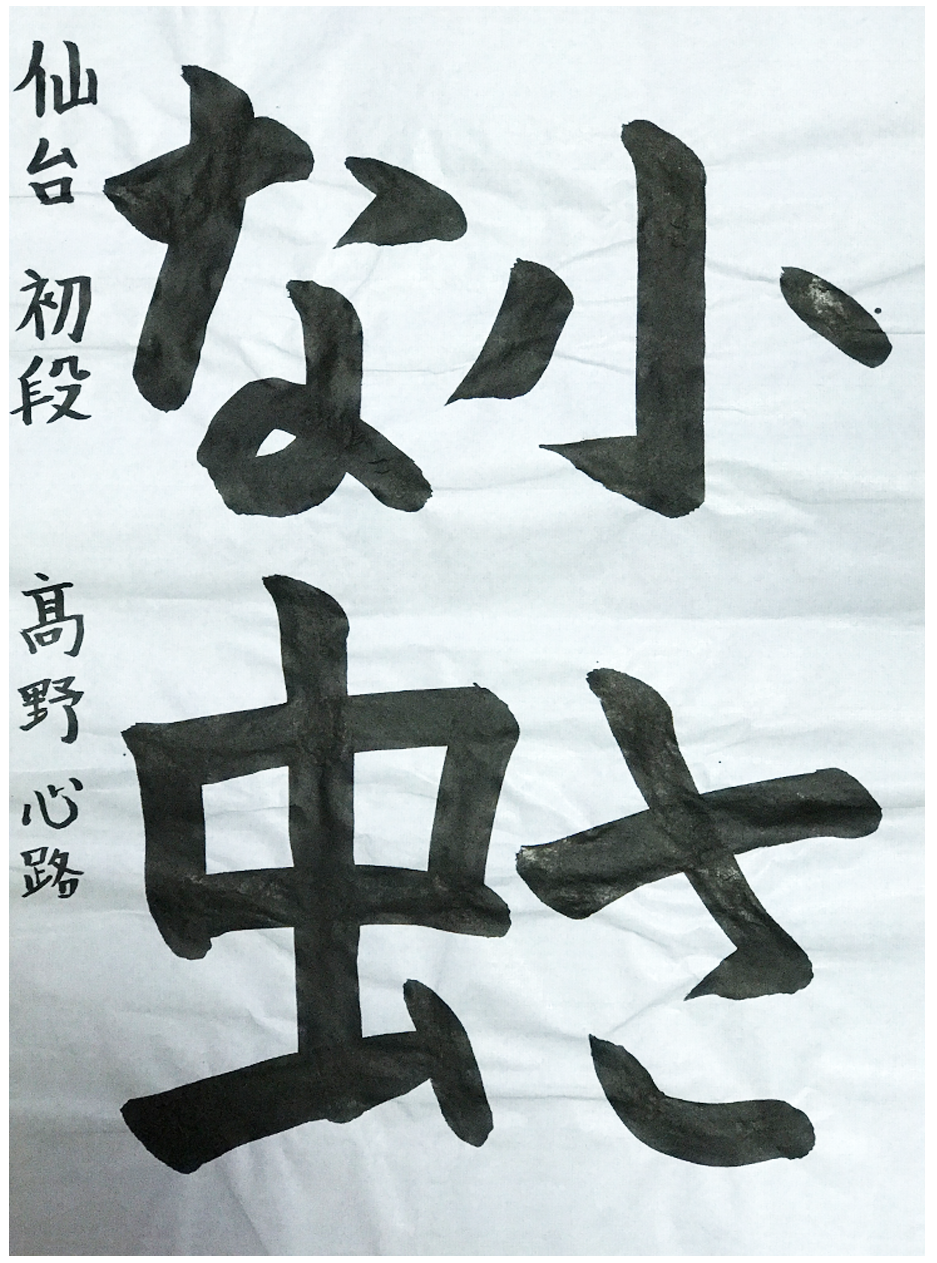 小さ
な虫
仙台 初段 髙野心路